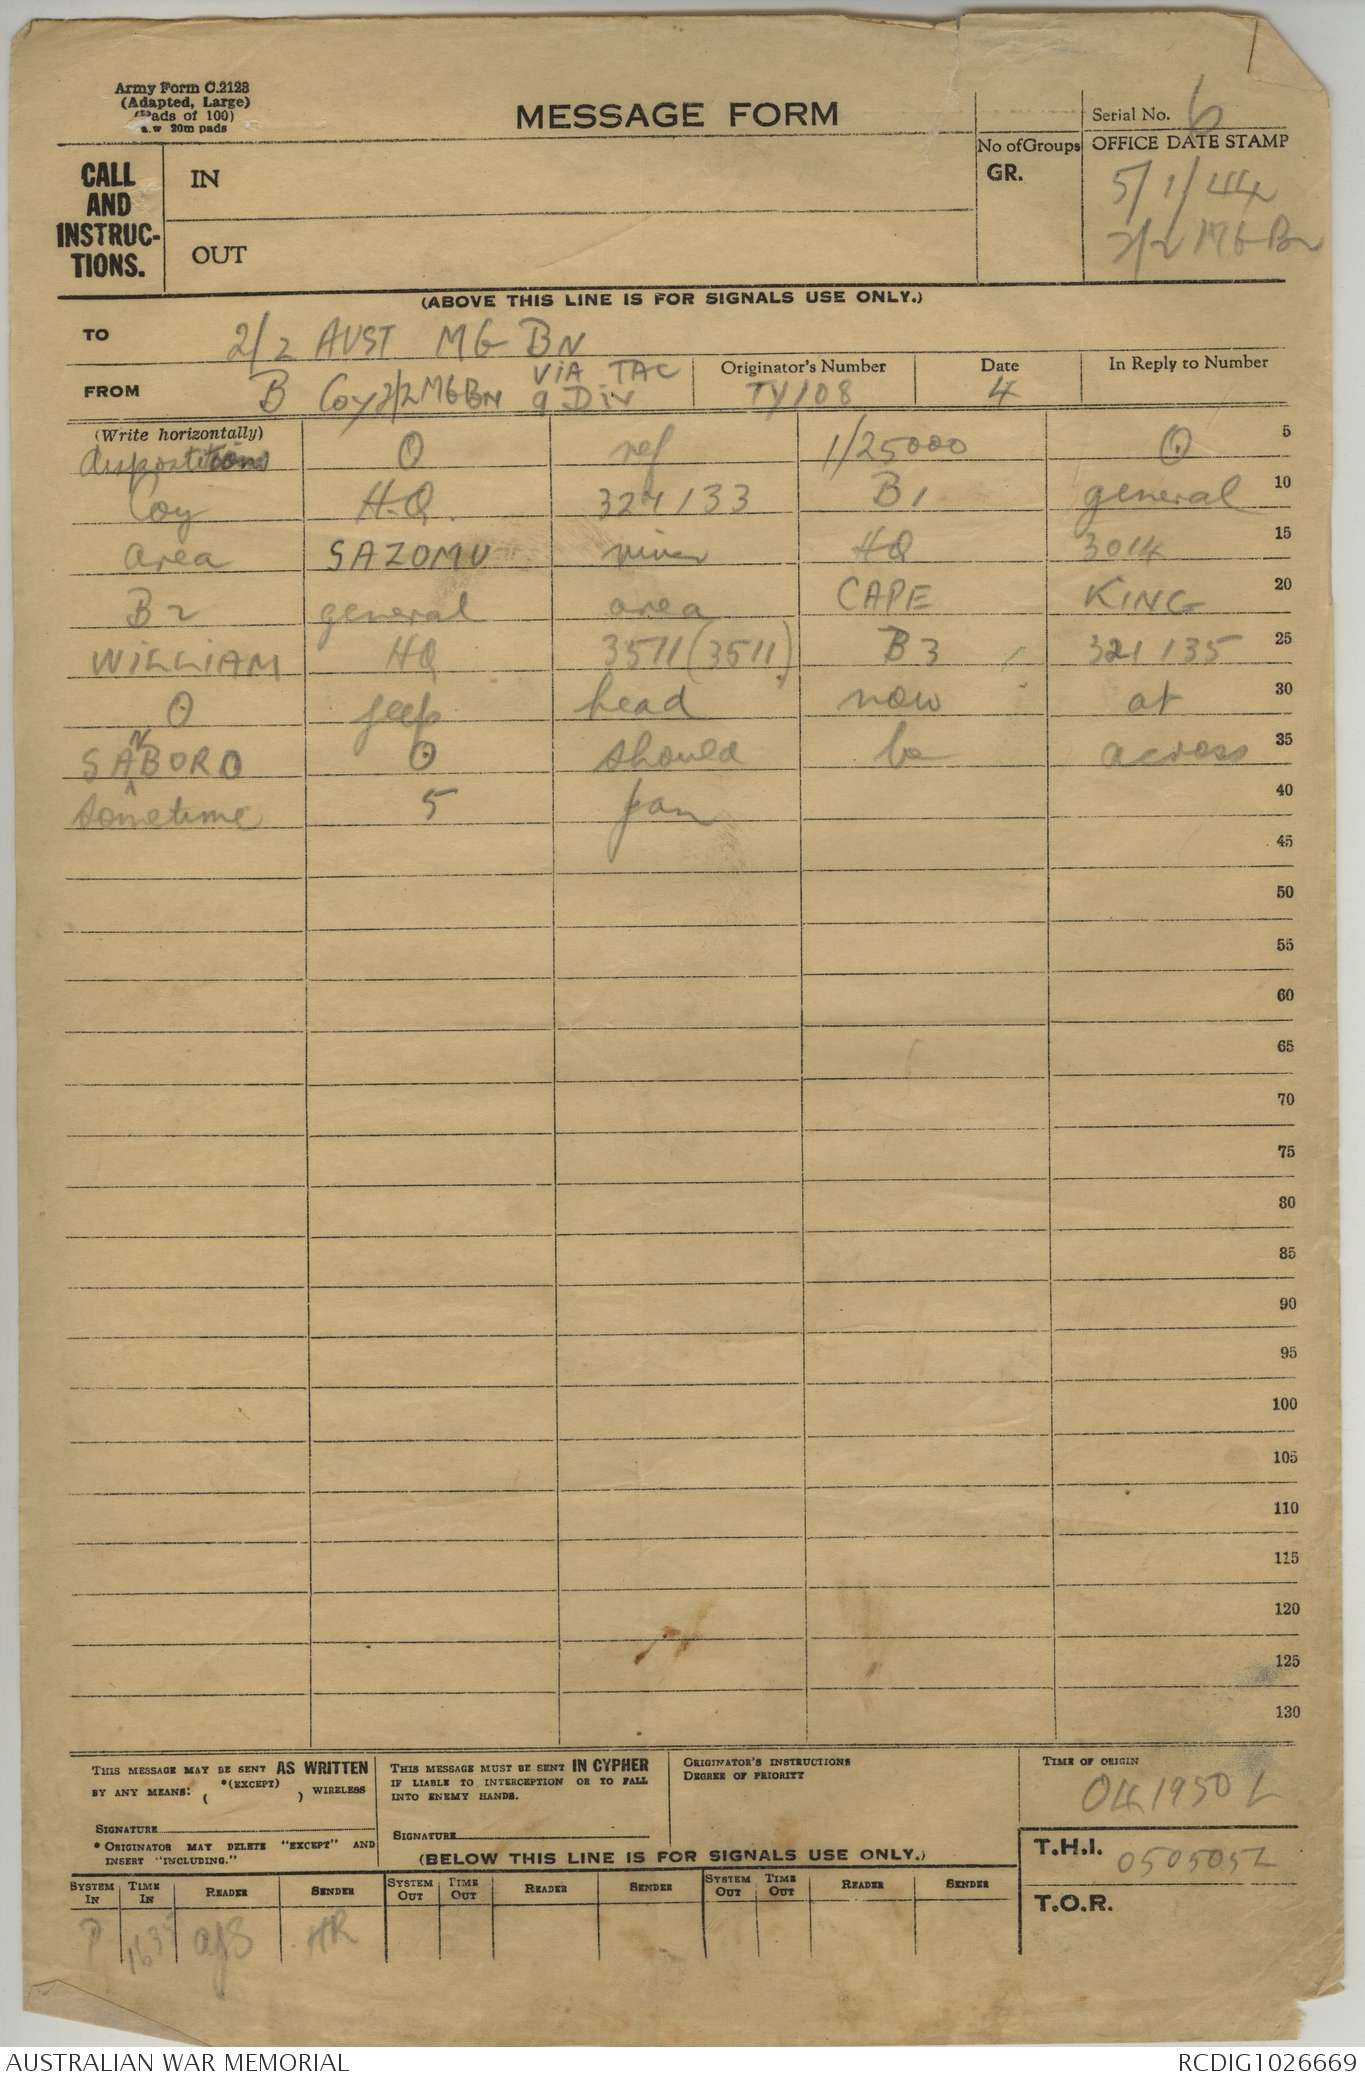 Army Form C.2128
(Adapted, Large)
(Pads of 100)
20m pads
MESSAGE FORM
Serial No. 6
CALL AND INSTRUC-TIONS.
IN
OUT
No of Groups
GR.
OFFICE DATE STAMP
5/1/44
2/2 MG Bn
(ABOVE THIS LINE IS FOR SIGNALS USE ONLY.)
TO 2/2 AUST MG BN
FROM B Coy 2/2 MG BN VIA TAC 9 DIV
Originator's Number TY108
Date 4
In Reply to Number
(Write horizontally)
dispositions O ref 1/25000 O 5
Coy H.Q. 324133 B1 general 10
area SAZOMU river HQ 3014 15
B2 general area CAPE KING 20
WILLIAM HQ 3511 (3511) B3 321135 25
O jeep head now at 30
SANBORO O should be across 35
sometime 5 jan 40
45
50
55
60
65
70
75
80
85
90
95
100
105
110
115
120
125
130
THIS MESSAGE MAY BE SENT AS WRITTEN
BY ANY MEANS: *(EXCEPT) ( ) WIRELESS
SIGNATURE
* ORIGINATOR MAY DELETE "EXCEPT" AND
INSERT "INCLUDING."
THIS MESSAGE MUST BE SENT IN CYPHER
IF LIABLE TO INTERCEPTION OR TO FALL
INTO ENEMY HANDS.
SIGNATURE
ORIGINATOR'S INSTRUCTIONS
DEGREE OF PRIORITY
TIME OF ORIGIN
041950L
(BELOW THIS LINE IS FOR SIGNALS USE ONLY.)
T.H.I. 050505Z
T.O.R.
SYSTEM IN TIME IN READER SENDER SYSTEM OUT TIME OUT READER SENDER SYSTEM OUT TIME OUT READER SENDER
P HR
AUSTRALIAN WAR MEMORIAL
RCDIG1026669